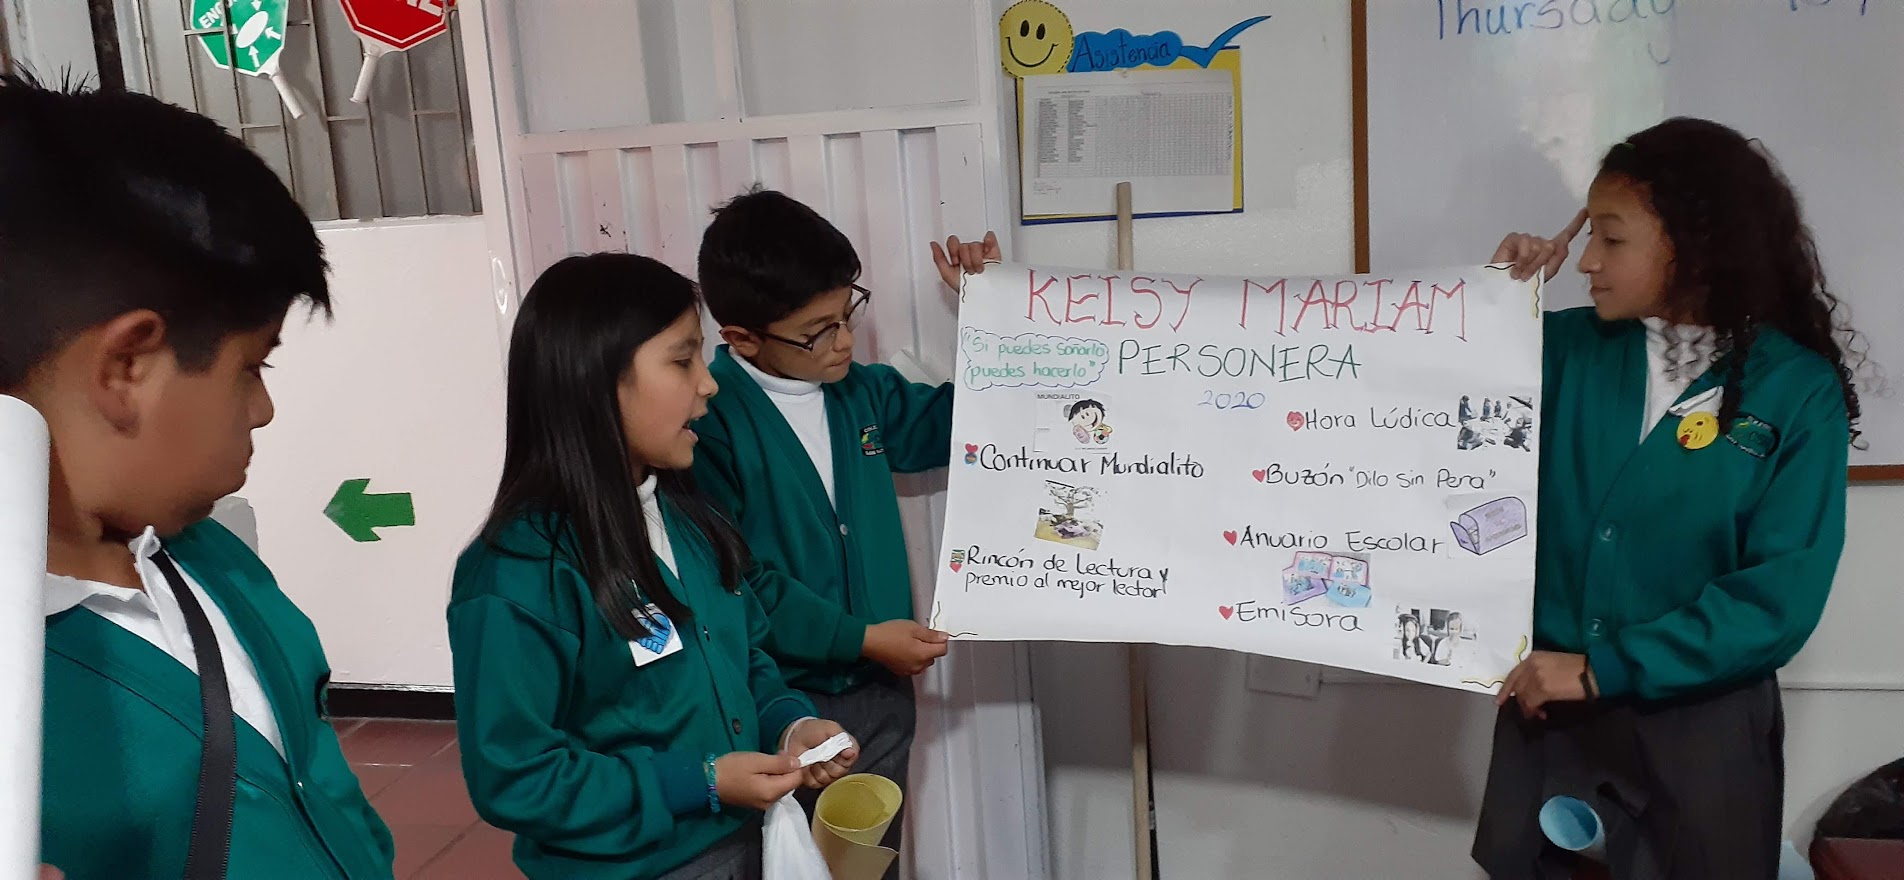 Asistencia
Thursday
KEISY MARIAM
"Si puedes soñarlo
puedes hacerlo"
PERSONERA
2020
MUNDIALITO
Continuar Mundialito
Rincón de Lectura y
premio al mejor lector
Hora Lúdica
Buzón "Dilo Sin Pena"
Anuario Escolar
Emisora